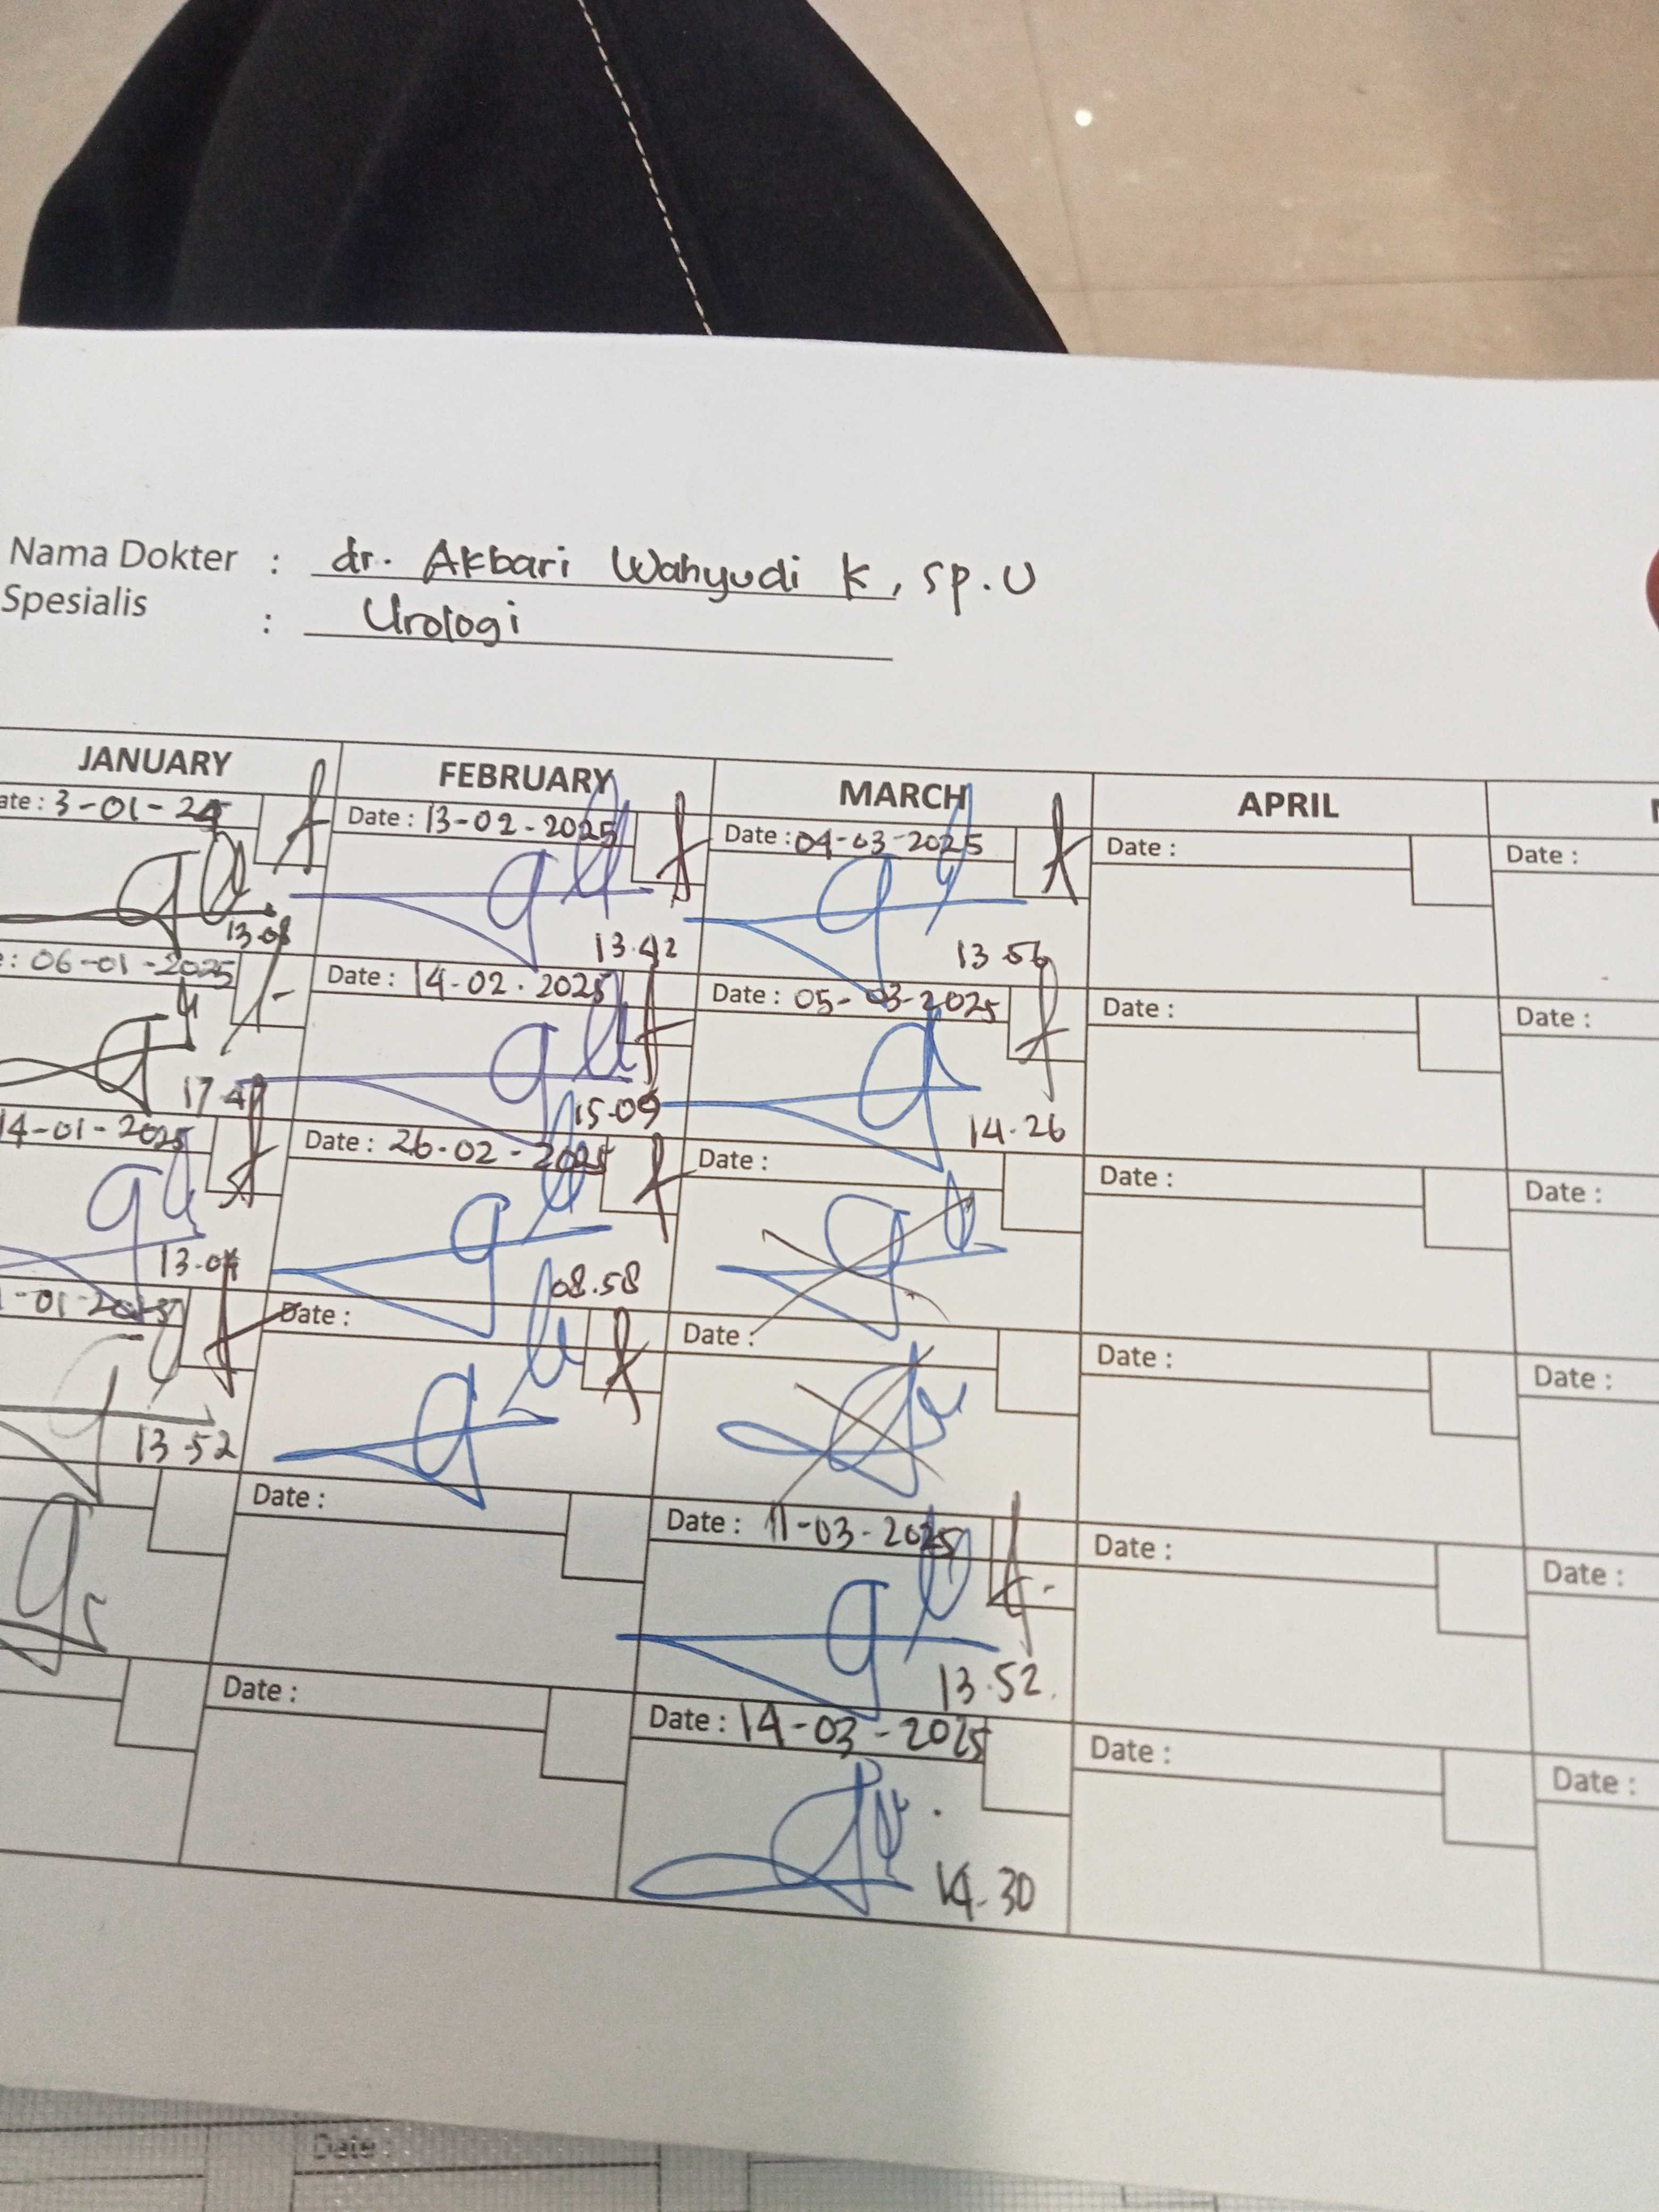 Nama Dokter : dr. Akbari Wahyudi K, Sp.U
Spesialis : Urologi
JANUARY FEBRUARY MARCH APRIL
ate : 3-01-25 Date : 13-02-2025 Date : 04-03-2025 Date : Date :
13.08 13.42 13.56
: 06-01-2025 Date : 14-02.2025 Date : 05-03-2025 Date : Date :
17.47 15.09 14.26
14-01-2025 Date : 26-02-2025 Date : Date : Date :
13.04 08.58
-01-2025 Date : Date : Date : Date :
13.52
Date : Date : 11-03-2025 Date : Date :
13.52
Date : Date : 14-03-2025 Date : Date :
14.30
Date :